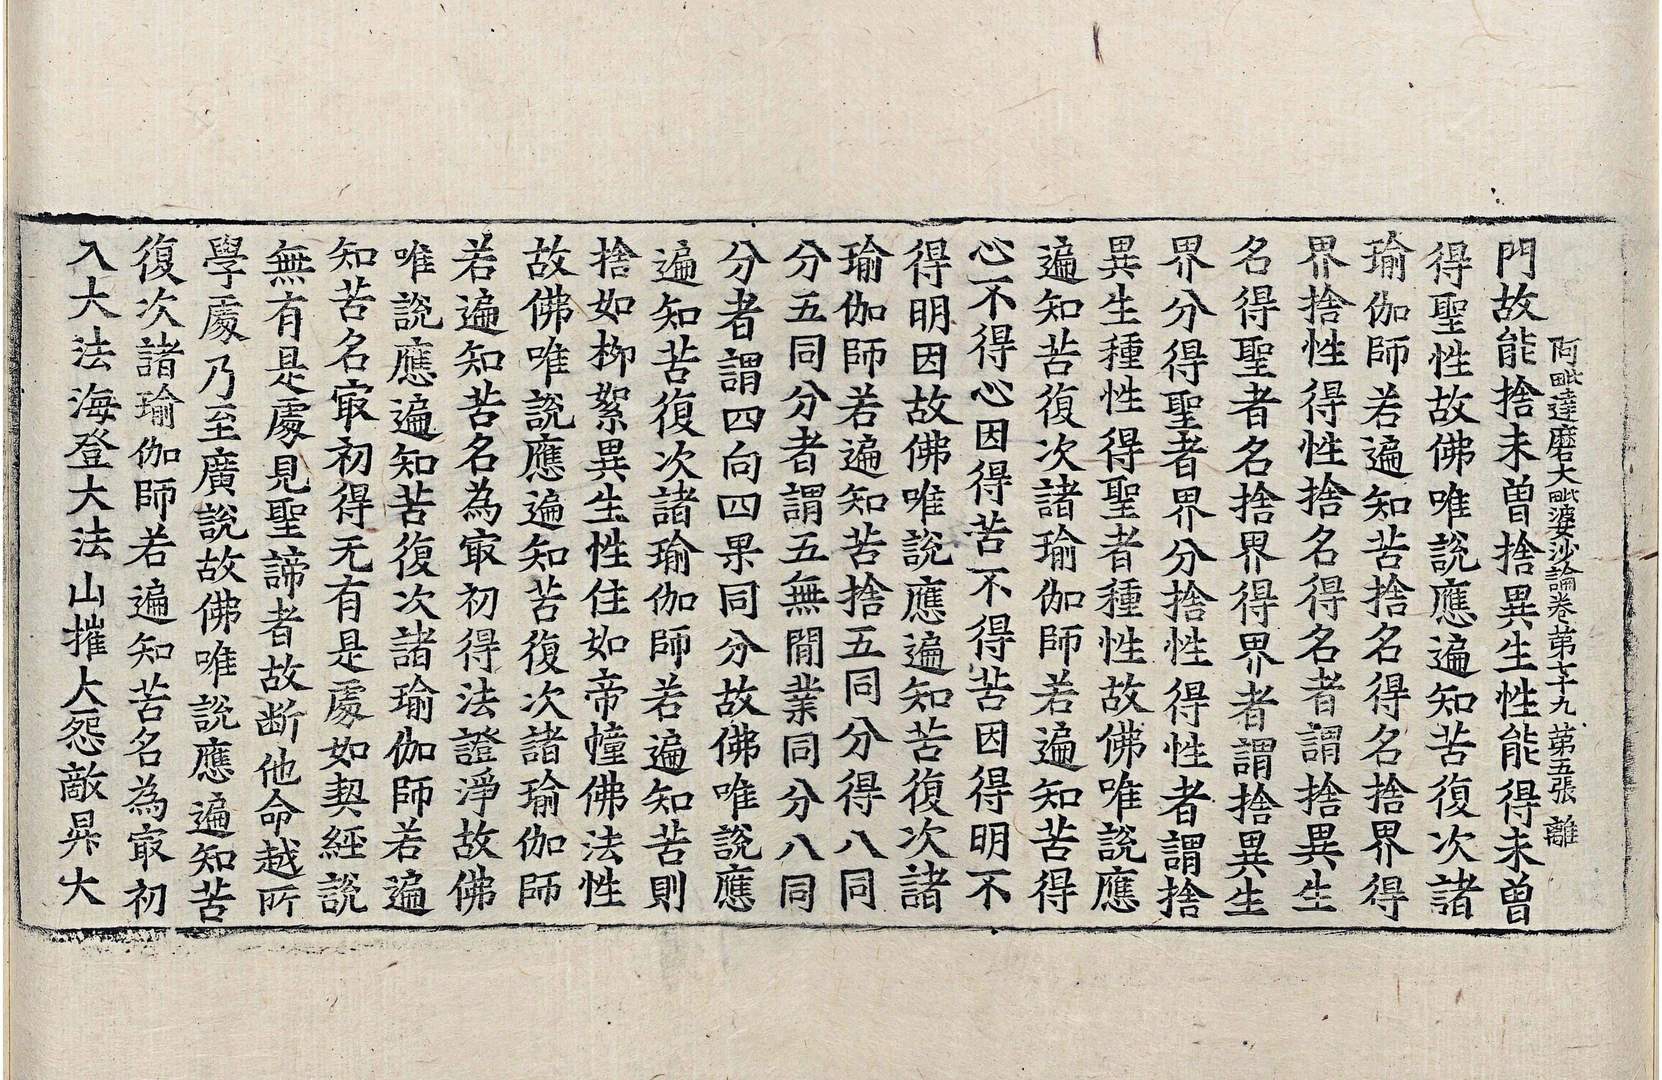 阿毗達磨大毗婆沙論卷第七十九 第五張 離
門故能捨未曾捨異生性能得未曾
得聖性故佛唯說應遍知苦復次諸
瑜伽師若遍知苦捨名得名捨界得
界捨性得性捨名得名者謂捨異生
名得聖者名捨界得界者謂捨異生
界分得聖者界分捨性得性者謂捨
異生種性得聖者種性故佛唯說應
遍知苦復次諸瑜伽師若遍知苦得
心不得心因得苦不得苦因得明不
得明因故佛唯說應遍知苦復次諸
瑜伽師若遍知苦捨五同分得八同
分五同分者謂五無間業同分八同
分者謂四向四果同分故佛唯說應
遍知苦復次諸瑜伽師若遍知苦則
捨如柳絮異生性住如帝幢佛法性
故佛唯說應遍知苦復次諸瑜伽師
若遍知苦名為㝡初得法證淨故佛
唯說應遍知苦復次諸瑜伽師若遍
知苦名㝡初得无有是處如契經說
無有是處見聖諦者故断他命越所
學處乃至廣說故佛唯說應遍知苦
復次諸瑜伽師若遍知苦名為㝡初
入大法海登大法山摧大怨敵昇大